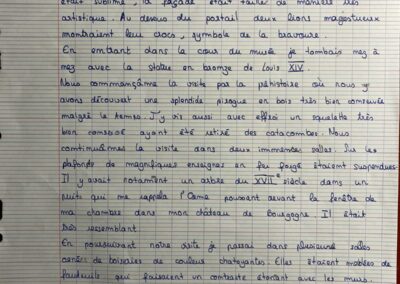 était sublime, la façade était taillé de manière très
artistique. Au dessus du portail deux lions magestueux
montraient leur crocs, symbole de la bravoure.
En entrant dans la cour du musée je tombais nez à
nez avec la statue en bronze de Louis XIV.
Nous commençâme la visite par la préhistoire où nous y
avons découvert une splendide pirogue en bois très bien conservée
malgré le temps. J'y vis aussi avec effroi un squelette très
bien conservé ayant été retiré des catacombes. Nous
continuâmes la visite dans deux immenses salles. Sur les
plafonds de magnifiques enseignes en fer forgé étaient suspendues.
Il y avait notamment un arbre du XVII e siècle dans un
puits qui me rappela l'Orme poussant devant la fenêtre de
ma chambre dans mon château de Bourgogne. Il était
très ressemblant.
En poursuivant notre visite je passai dans plusieurs salles
ornées de boiseries de couleur chatoyantes. Elles étaient meublées de
fauteuils qui faisaient un contraste étonnant avec les murs.